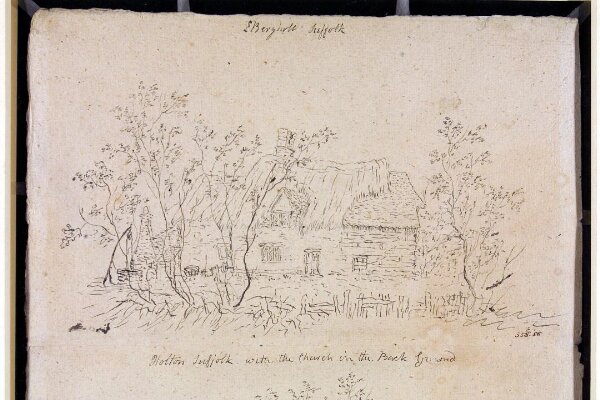 E Bergholt Suffolk
Holton Suffolk with the Church in the Back Ground